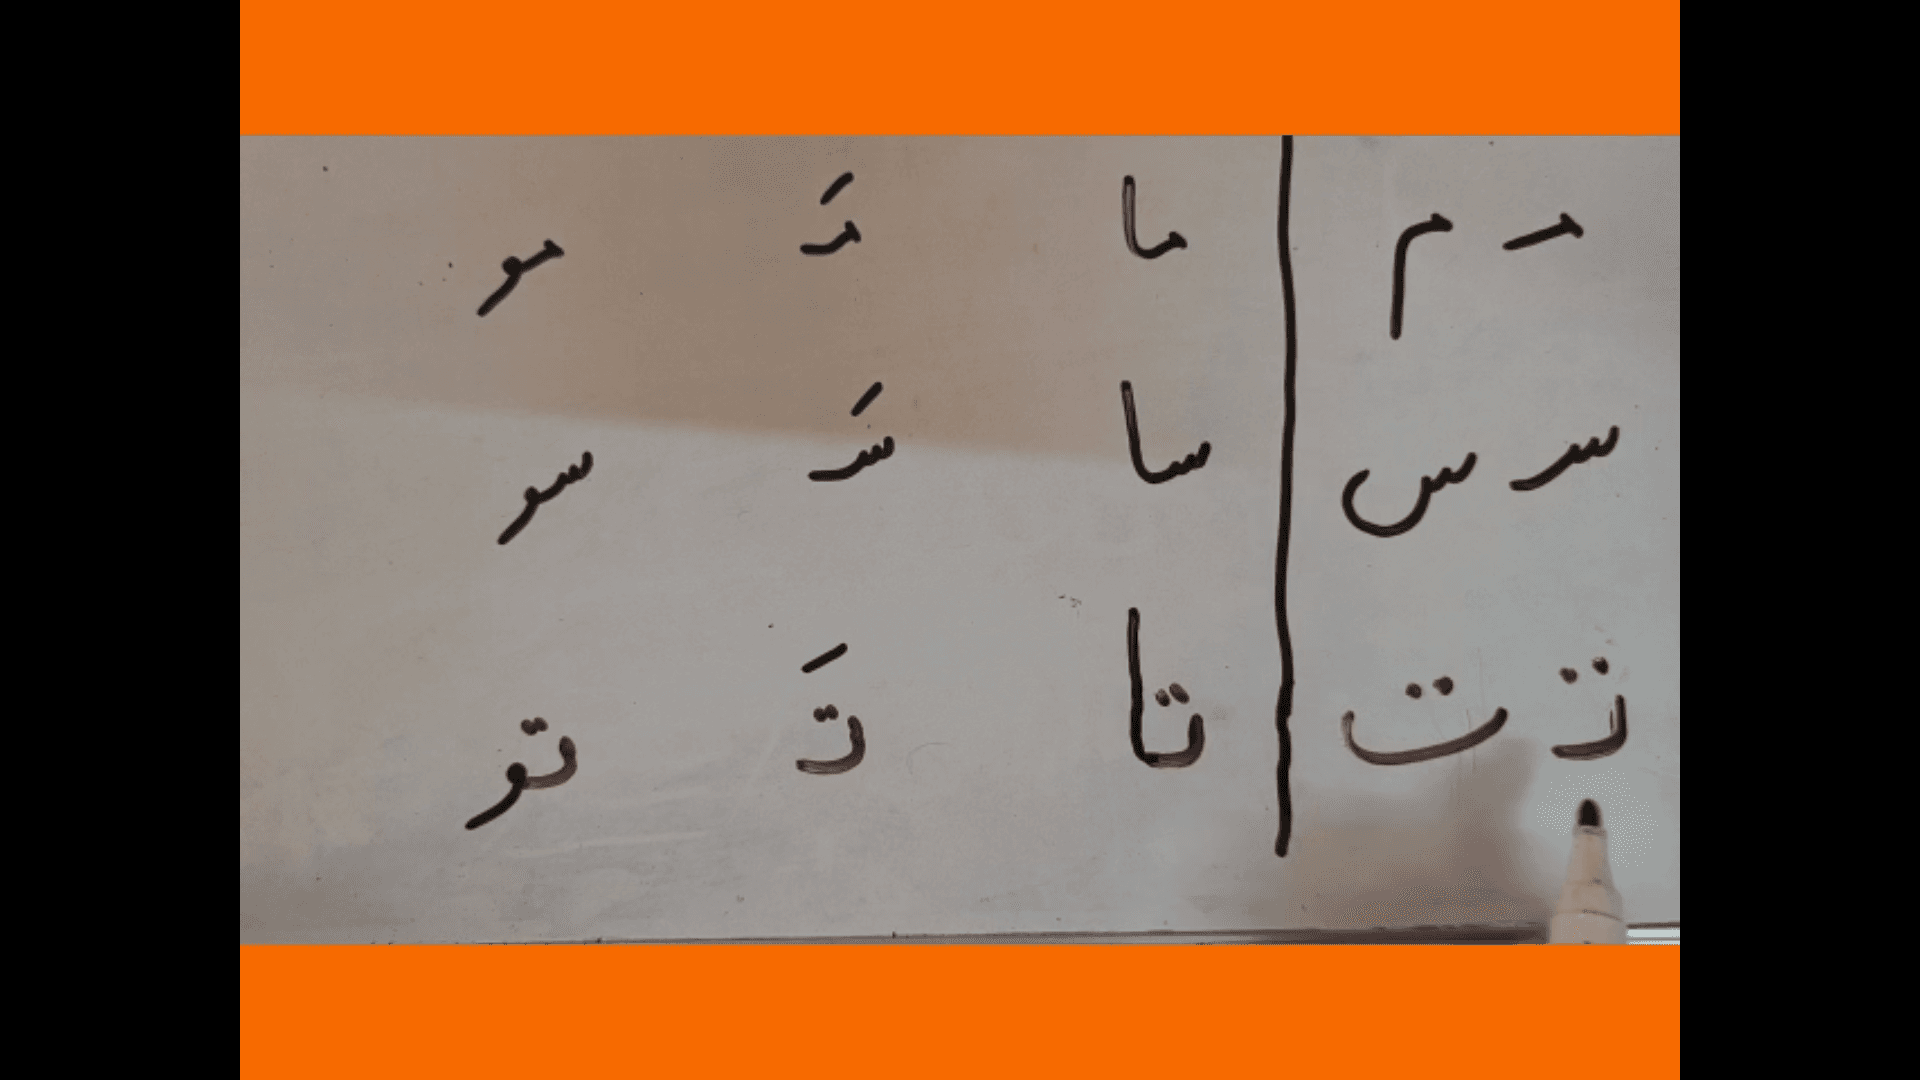 مـ م ما مَـ مو
سـ س سا سَـ سو
تـ ت تا تَـ تو